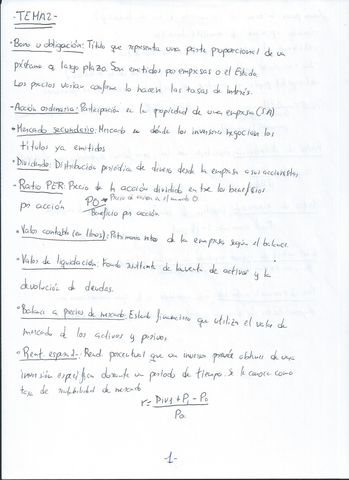 -TEMA2-
•Bono u obligación: Título que representa una parte proporcional de un
préstamo a largo plazo. Son emitidos por empresas o el Estado
Los precios varían conforme lo hacen las tasas de interés.
-Acción ordinaria: Participación en la propiedad de una empresa (SA)
•Mercado secundario: Mercado en dónde los inversores negocian los
títulos ya emitidos
•Dividendo: Distribución periódica de dinero desde la empresa a sus accionistas
-Ratio PER: Precio de la acción dividido entre los beneficios
por acción PO → Precio de acción en el momento 0
Beneficio por acción
•Valor contable (en libros): Patrimonio neto de la empresa según el balance
-Valor de liquidación: Fondo resultante de la venta de activos y la
devolución de deudas.
•Balance a precios de mercado: Estado financiero que utiliza el valor de
mercado de los activos y pasivos
•Rent esperad.: Rend. porcentual que un inversor prevée obtener de una
inversión específica durante un período de tiempo. Se la conoce como
tasa de rentabilidad de mercado
r= Div1 + P1 - P0
P0
-1-